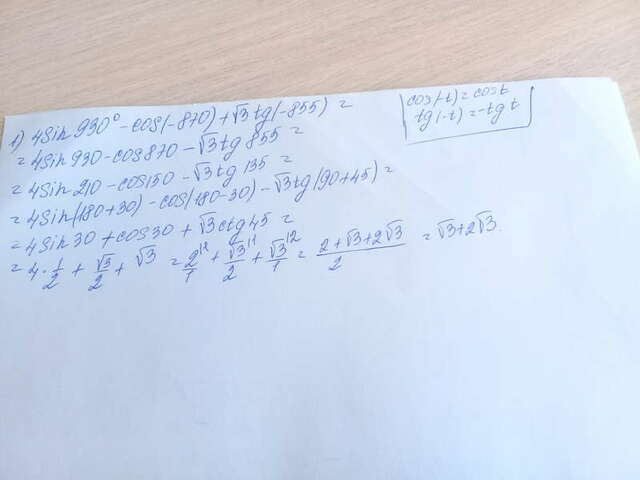 1) 4Sin 930° - cos(-870) + √3 tg(-855) =
= 4Sin 930 - cos 870 - √3 tg 855 =
= 4Sin 210 - cos 150 - √3 tg 135 =
= 4Sin(180+30) - cos(180-30) - √3 tg(90+45) =
= 4Sin 30 + cos 30 + √3 ctg 45 =
= 4 · 1/2 + √3/2 + √3 = 2/1 + √3/2 + √3/1 = (2 + √3 + 2√3)/2 = √3 + 2√3.
cos(-t) = cos t
tg(-t) = -tg t